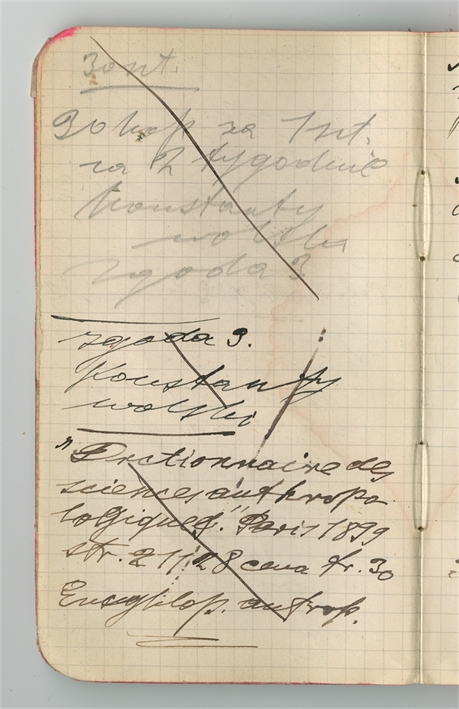 30 nt.
90 kop za 1 szt.
za 2 tygodnie
Konstanty
Wolski
zgoda 3
zgoda 3.
Konstanty
Wolski
"Dictionnaire des
sciences anthropo
logiques". Paris 1899
str. 2 1128 cena fr. 30
Encyklop. antrop.